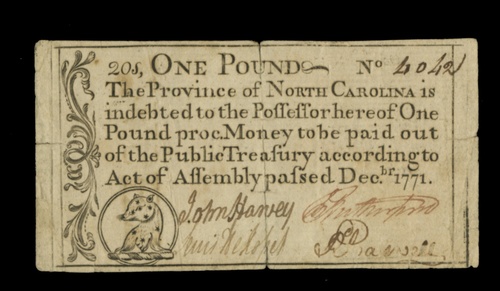 20s, ONE POUND No 4042
The Province of NORTH CAROLINA is
indebted to the Poſſeſſor hereof One
Pound proc. Money to be paid out
of the Public Treaſury according to
Act of Aſſembly paſſed Dec.br 1771.
John Harvey